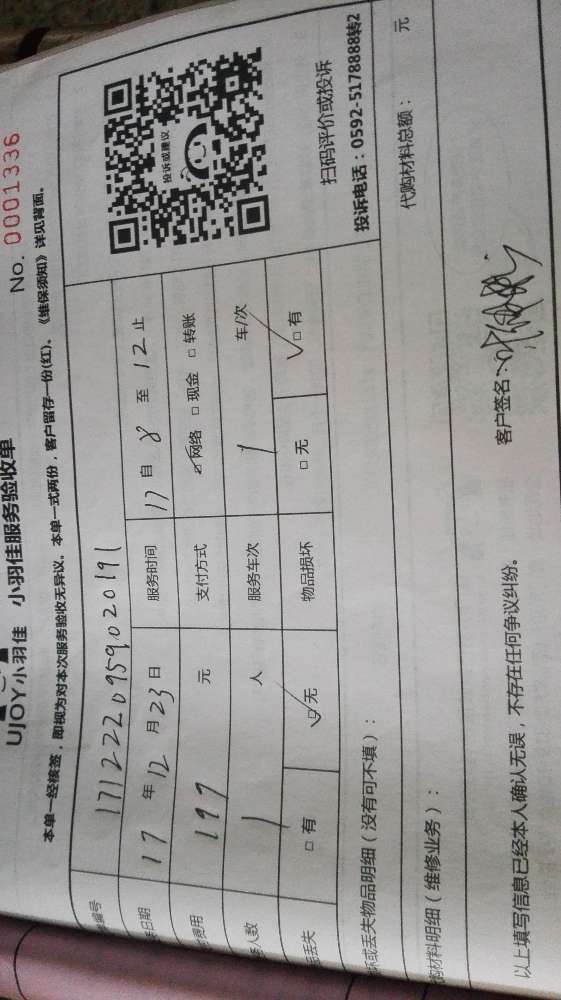 UJOY小羽佳 小羽佳服务验收单
No. 0001336
本单一经核签，即视为对本次服务验收无异议。本单一式两份，客户留存一份(红)、《维保须知》详见背面。
编号 1712220959020191
日期 17 年 12 月 23 日 服务时间 17 自 8 至 12 止
费用 197 元 支付方式 ☑网络 □现金 □转账
人数 1 人 服务车次 1 车/次
丢失 □有 ☑无 物品损坏 □无 ☑有
投诉或建议
扫码评价或投诉
投诉电话：0592-5178888转2
或丢失物品明细（没有可不填）：
材料明细（维修业务）： 代购材料总额： 元
以上填写信息已经本人确认无误，不存在任何争议纠纷。 客户签名：